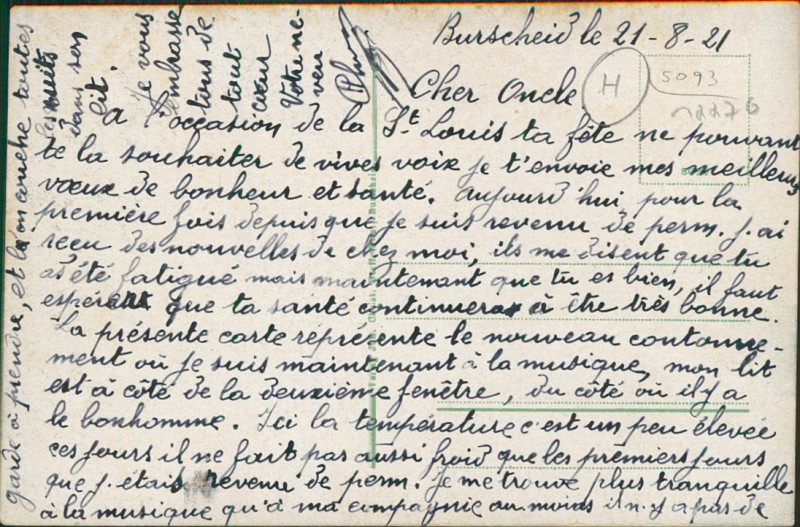 Burscheid le 21-8-21
H
5093
12276
Cher Oncle
A l'occasion de la St Louis ta fête ne pouvant
te la souhaiter de vives voix je t'envoie mes meilleurs
vœux de bonheur et santé. Aujourd'hui pour la
première fois depuis que je suis revenu de perm. j.ai
reçu des nouvelles de chez moi, ils me disent que tu
as été fatigué mais maintenant que tu es bien, il faut
espérer que ta santé continuera à être très bonne.
La présente carte représente le nouveau contonne-
ment où je suis maintenant à la musique, mon lit
est à côté de la deuxième fenêtre, du côté où il y a
le bonhomme. Ici la température c'est un peu élevée
ces jours il ne fait pas aussi froid que les premiers jours
que j.étais revenu de perm. Je me trouve plus tranquille
à la musique qu'à ma compagnie au moins il n.y a pas de
garde à prendre, et l'on couche toutes
les nuits
dans son
lit.
Je vous
embrasse
tous de
tout
cœur
Votre ne-
veu